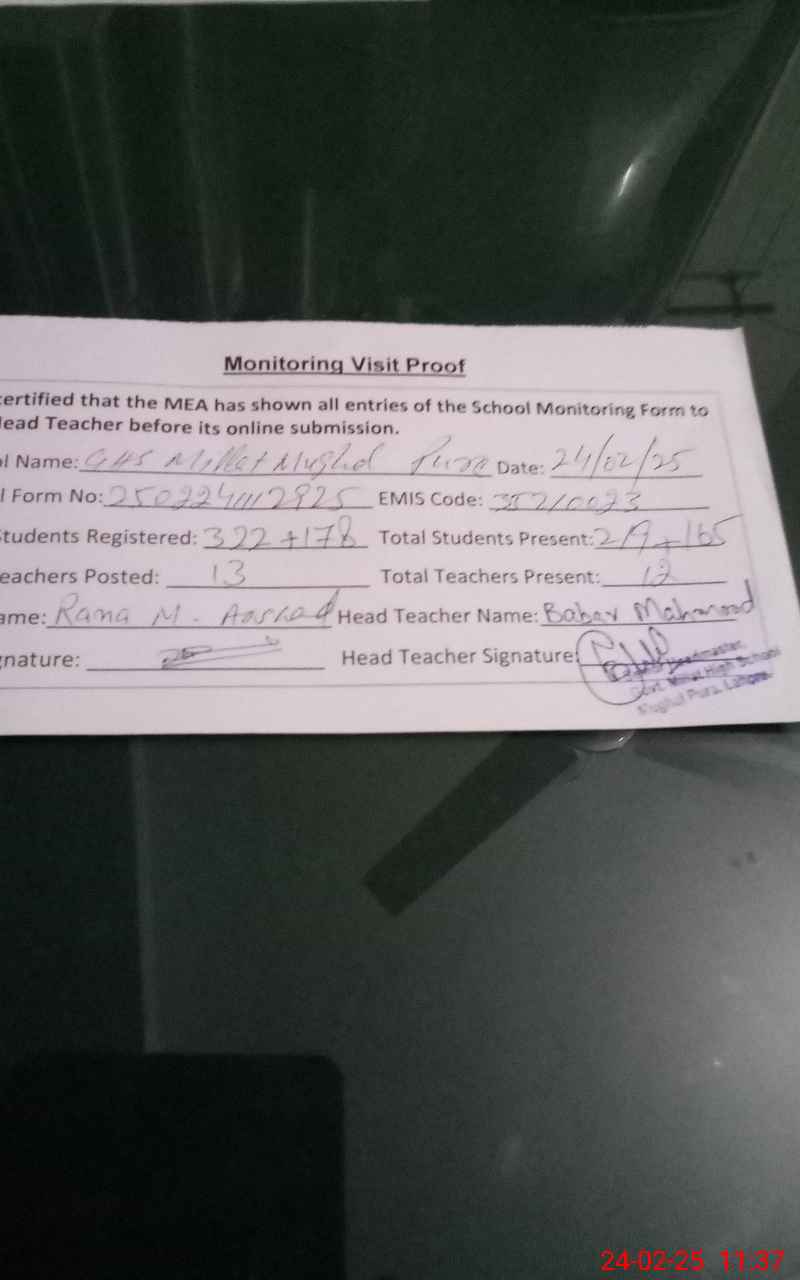 Monitoring Visit Proof
ertified that the MEA has shown all entries of the School Monitoring Form to
ead Teacher before its online submission.
l Name: GHS Millat Mughal Pura Date: 24/02/25
l Form No: EMIS Code: 35210023
tudents Registered: 322+178 Total Students Present: 219+165
eachers Posted: 13 Total Teachers Present: 12
ame: Rana M. Aarshad Head Teacher Name: Babar Mahmood
nature: Head Teacher Signature:
Headmaster
Govt. Millat High School
Mughal Pura, Lahore.
24-02-25 11:37